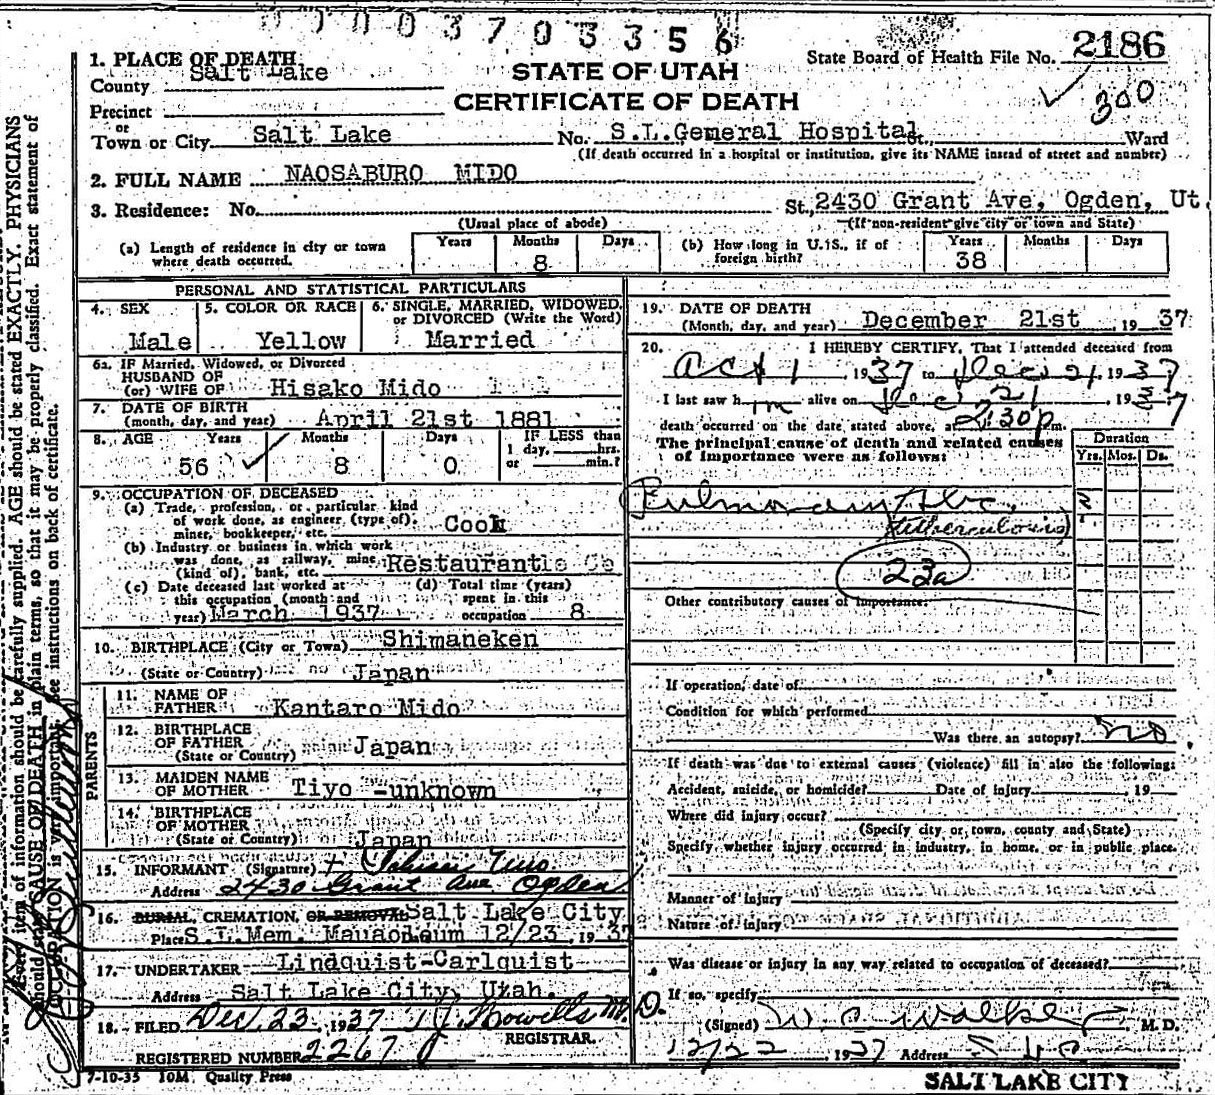 0 0 0 3 7 0 3 3 5 6
State Board of Health File No. 2186
300
STATE OF UTAH
CERTIFICATE OF DEATH
1. PLACE OF DEATH
County Salt Lake
Precinct
or
Town or City Salt Lake No. S.L.General Hospital St., Ward
(If death occurred in a hospital or institution, give its NAME instead of street and number)
2. FULL NAME NAOSABURO MIDO
3. Residence: No. St., 2430 Grant Ave, Ogden, Ut.
(Usual place of abode) (If non-resident give city or town and State)
(a) Length of residence in city or town where death occurred. Years Months 8 Days
(b) How long in U.S., if of foreign birth? Years 38 Months Days
PERSONAL AND STATISTICAL PARTICULARS
4. SEX Male
5. COLOR OR RACE Yellow
6. SINGLE, MARRIED, WIDOWED, or DIVORCED (Write the Word) Married
6a. IF Married, Widowed, or Divorced
HUSBAND OF
(or) WIFE OF Hisako Mido
7. DATE OF BIRTH
(month, day, and year) April 21st 1881
8. AGE Years 56 Months 8 Days 0 IF LESS than 1 day, hrs. or min.?
9. OCCUPATION OF DECEASED
(a) Trade, profession, or particular kind
of work done, as engineer (type of),
miner, bookkeeper, etc. Cook
(b) Industry or business in which work
was done, as railway, mine
(kind of), bank, etc. Restaurant
(c) Date deceased last worked at
this occupation (month and
year) March 1937
(d) Total time (years)
spent in this
occupation 8
10. BIRTHPLACE (City or Town) Shimaneken
(State or Country) Japan
PARENTS
11. NAME OF
FATHER Kantaro Mido
12. BIRTHPLACE
OF FATHER
(State or Country) Japan
13. MAIDEN NAME
OF MOTHER Tiyo -unknown
14. BIRTHPLACE
OF MOTHER
(State or Country) Japan
15. INFORMANT (Signature)
Address 2430 Grant Ave Ogden
16. BURIAL, CREMATION, OR REMOVAL Salt Lake City
Place S.L.Mem. Mauaoleum 12/23, 1937
17. UNDERTAKER Lindquist-Carlquist
Address Salt Lake City, Utah.
18. FILED Dec 23, 1937 T J Howells M.D.
REGISTRAR.
REGISTERED NUMBER 2267
7-10-35 10M Quality Press
19. DATE OF DEATH
(Month, day, and year) December 21st, 1937
20. I HEREBY CERTIFY, That I attended deceased from
Oct 1 1937 to Dec 21, 1937
I last saw him alive on Dec 21, 1937
death occurred on the date stated above, at 2:30 p m.
The principal cause of death and related causes
of importance were as follows:
Duration
Yrs. Mos. Ds.
Pulmonary Tbc.
(tuberculosis)
23a
Other contributory causes of importance:
If operation, date of
Condition for which performed
Was there an autopsy? no
If death was due to external causes (violence) fill in also the following:
Accident, suicide, or homicide? Date of injury , 19
Where did injury occur?
(Specify city or town, county and State)
Specify whether injury occurred in industry, in home, or in public place.
Manner of injury
Nature of injury
Was disease or injury in any way related to occupation of deceased?
If so, specify
(Signed) W. C. Walker M. D.
12/22, 1937 Address S L C
SALT LAKE CITY
item of information should be carefully supplied. AGE should be stated EXACTLY. PHYSICIANS
should state CAUSE OF DEATH in plain terms, so that it may be properly classified. Exact statement of
OCCUPATION is very important. See instructions on back of certificate.